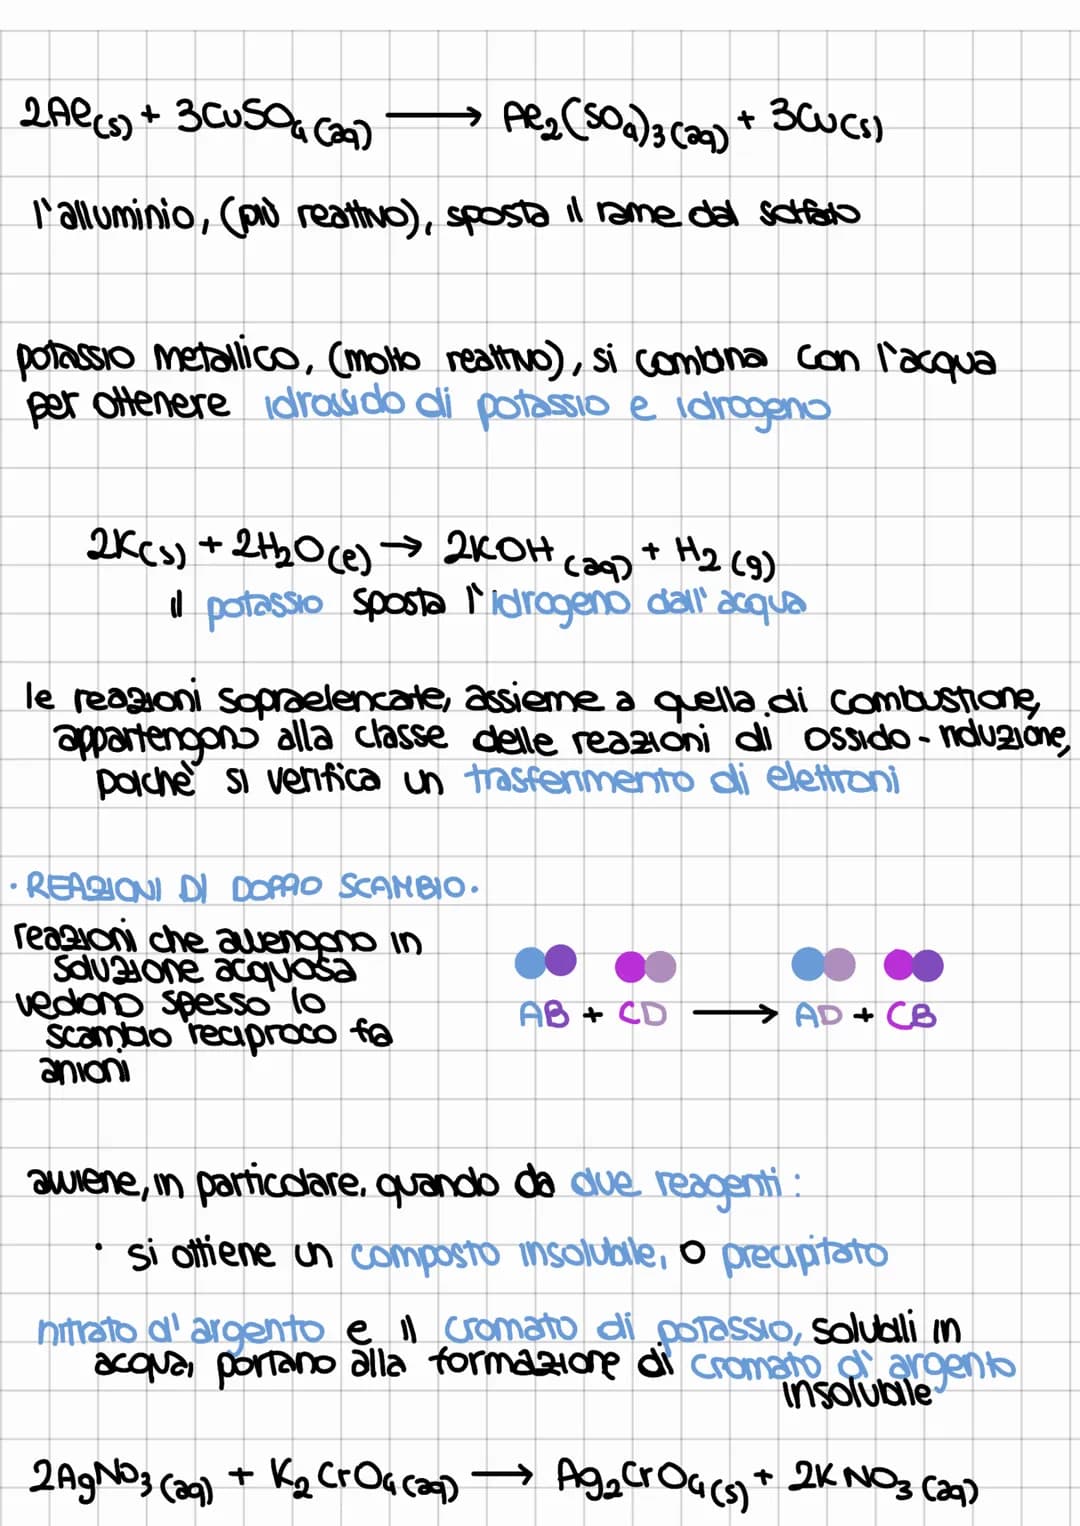 2Al(s) + 3CuSO₄(aq) → Al₂(SO₄)₃(aq) + 3Cu(s)
l'alluminio, (più reattivo), sposta il rame dal solfato
potassio metallico, (molto reattivo), si combina con l'acqua
per ottenere idrossido di potassio e idrogeno
2K(s) + 2H₂O(l) → 2KOH(aq) + H₂(g)
il potassio sposta l'idrogeno dall'acqua
le reazioni sopraelencate, assieme a quella di combustione,
appartengono alla classe delle reazioni di ossido-riduzione,
poichè si verifica un trasferimento di elettroni
· REAZIONI DI DOPPIO SCAMBIO ·
reazioni che avvengono in
soluzione acquosa
vedono spesso lo
scambio reciproco fra
anioni
AB + CD → AD + CB
avviene, in particolare, quando da due reagenti:
· si ottiene un composto insolubile, o precipitato
nitrato d'argento e il cromato di potassio, solubili in
acqua, portano alla formazione di cromato d'argento
insolubile
2AgNO₃(aq) + K₂CrO₄(aq) → Ag₂CrO₄(s) + 2KNO₃(aq)